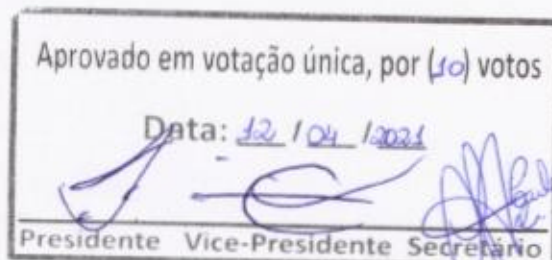 Aprovado em votação única, por (10) votos
Data: 12 / 04 / 2021
Presidente Vice-Presidente Secretário